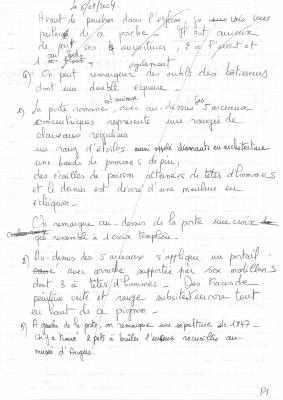 le 6/08/2004.
Avant de pénétrer dans l'église, je vais vous
parler de a porche - Il est curieux
de par ses 2 ouvertures, 1 à l'ouest et
1 au sud.
également
On peut remarquer des outils des bâtisseurs
dont une double équerre -
1) La porte romane, avec au-dessus ses 5 arceaux
concentriques représente une rangée de
claveaux réguliers
un rang d'étoiles aussi appelé diamants en architecture
une bande de pommes de pin,
des écailles de poisson alternées de têtes d'hommes
et le dernier est décoré d'une moulure en
échiquier -
On remarque au-dessus de la porte une croix
qui ressemble à 1 croix templière -
2) Au-dessus des 5 arceaux s'applique un portail
avec corniche supportée par six modillons
dont 3 à têtes d'hommes - Des traces de
peinture verte et rouge subsistent encore tout
en haut de ce pignon -
3) A gauche de la porte, on remarque une sépulture de 1247 -
On y a trouvé 2 pots à brûler l'encens recueillis au
musée d'Angers.